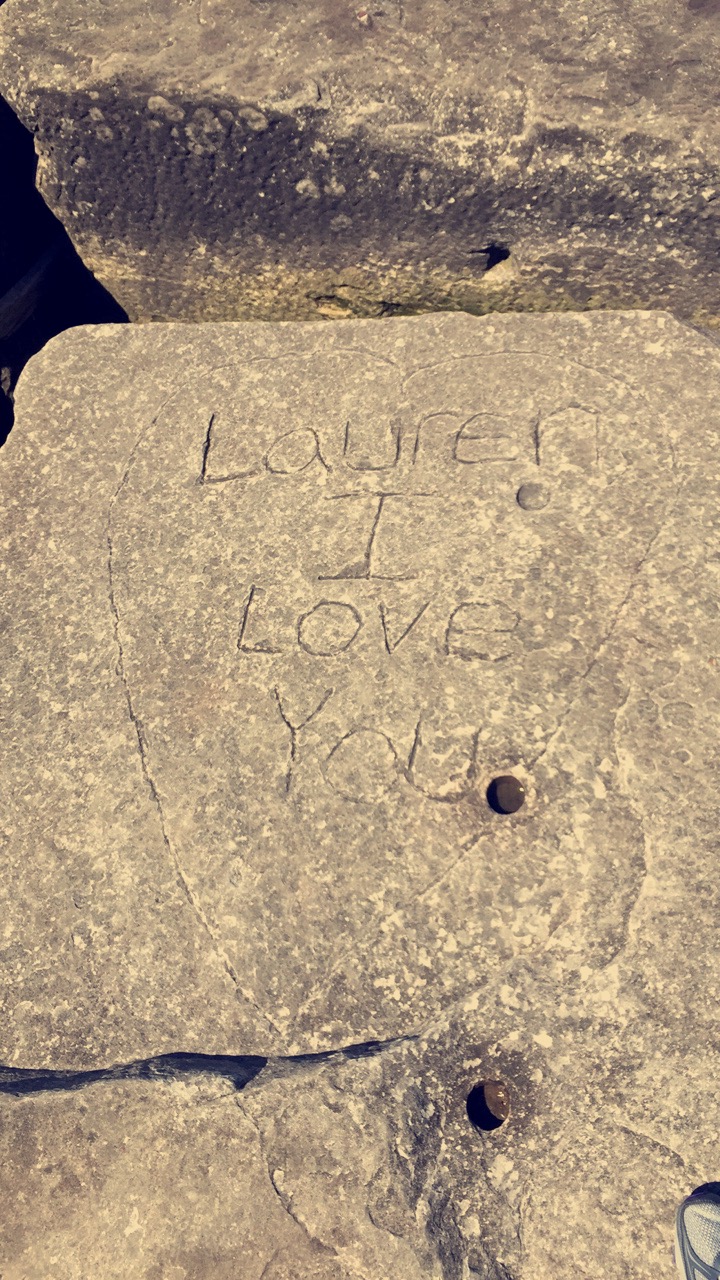 Lauren
I
Love
You